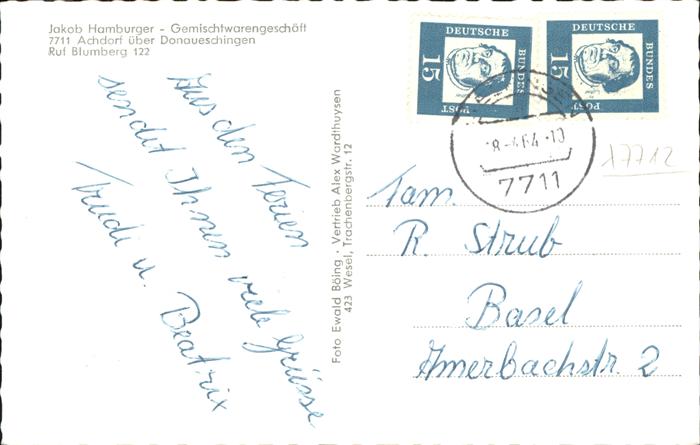 Jakob Hamburger - Gemischtwarengeschäft
7711 Achdorf über Donaueschingen
Ruf Blumberg 122
Aus den Ferien
sendet Ihnen viele Grüsse
Trudi u. Beatrix
Foto Ewald Böing · Vertrieb Alex Wardthuysen
423 Wesel, Trachenbergstr. 12
DEUTSCHE
BUNDES
POST
15
DEUTSCHE
BUNDES
POST
15
7711
17712
Fam.
R. Strub
Basel
Amerbachstr. 2